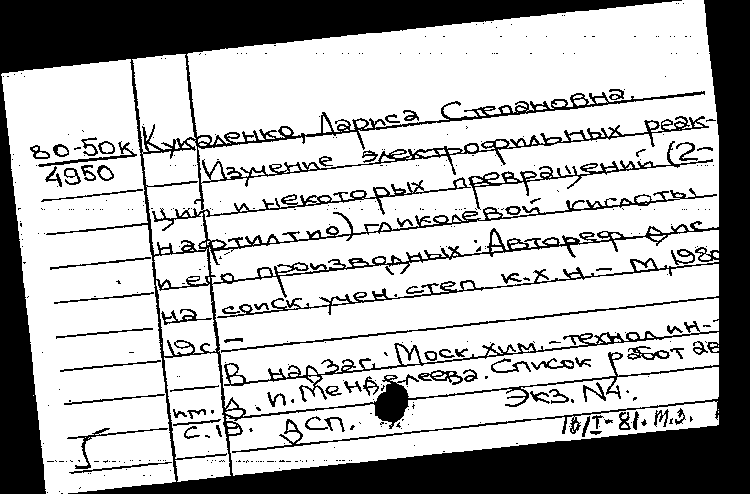 80-50к
4950
Кукаленко, Лариса Степановна.
Изучение электрофильных реак-
ций и некоторых превращений (2-
нафтилтио) гликолевой кислоты
и его производных: Автореф дис
на соиск. учен. степ. к.х.н. - М., 1980
19с. -
В надзаг.: Моск. хим.-технол ин-
т им. Д. И. Менделеева. Список работ ав
с.19. ДСП. Экз. N4.
18/I-81. М.З.